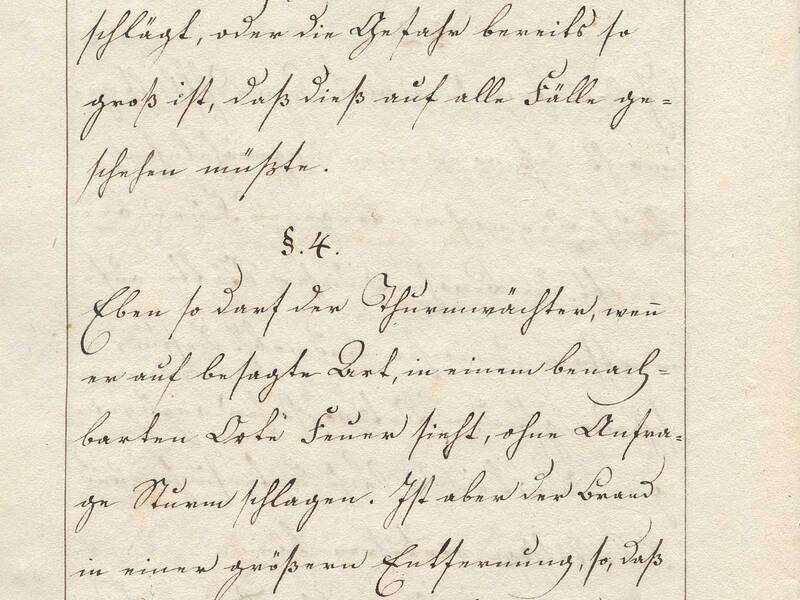 schlägt, oder die Gefahr bereits so
groß ist, daß dieß auf alle Fälle ge=
schehen müßte.
§. 4.
Eben so darf der Thurmwächter, wen̄
er auf besagte Art, in einem benach=
barten Orte Feuer sieht, ohne Anfra=
ge Sturm schlagen. Ist aber der Brand
in einer größern Entfernung, so, daß